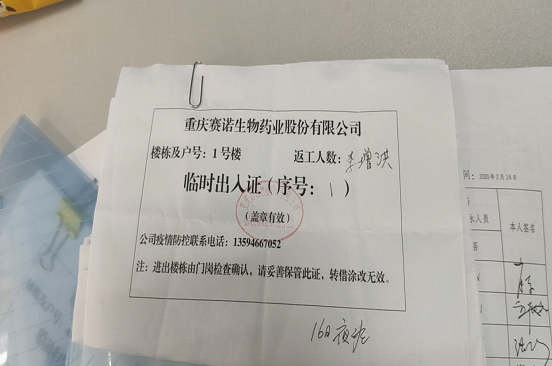 重庆赛诺生物药业股份有限公司
楼栋及户号：1号楼 返工人数：李增洪
临时出入证（序号：1）
（盖章有效）
公司疫情防控联系电话：13594667052
注：进出楼栋由门岗检查确认，请妥善保管此证，转借涂改无效。
16日夜班
间：2020年2月16日
人员
本人签名